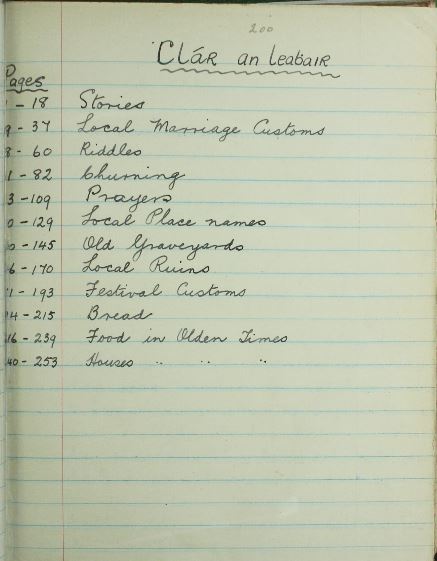 200
Clár an Leaḃair
Pages
1 - 18 Stories
9 - 37 Local Marriage Customs
8 - 60 Riddles
1 - 82 Churning
3 - 109 Prayers
0 - 129 Local Place names
0 - 145 Old Graveyards
6 - 170 Local Ruins
71 - 193 Festival Customs
94 - 215 Bread
216 - 239 Food in Olden Times
240 - 253 Houses " " "